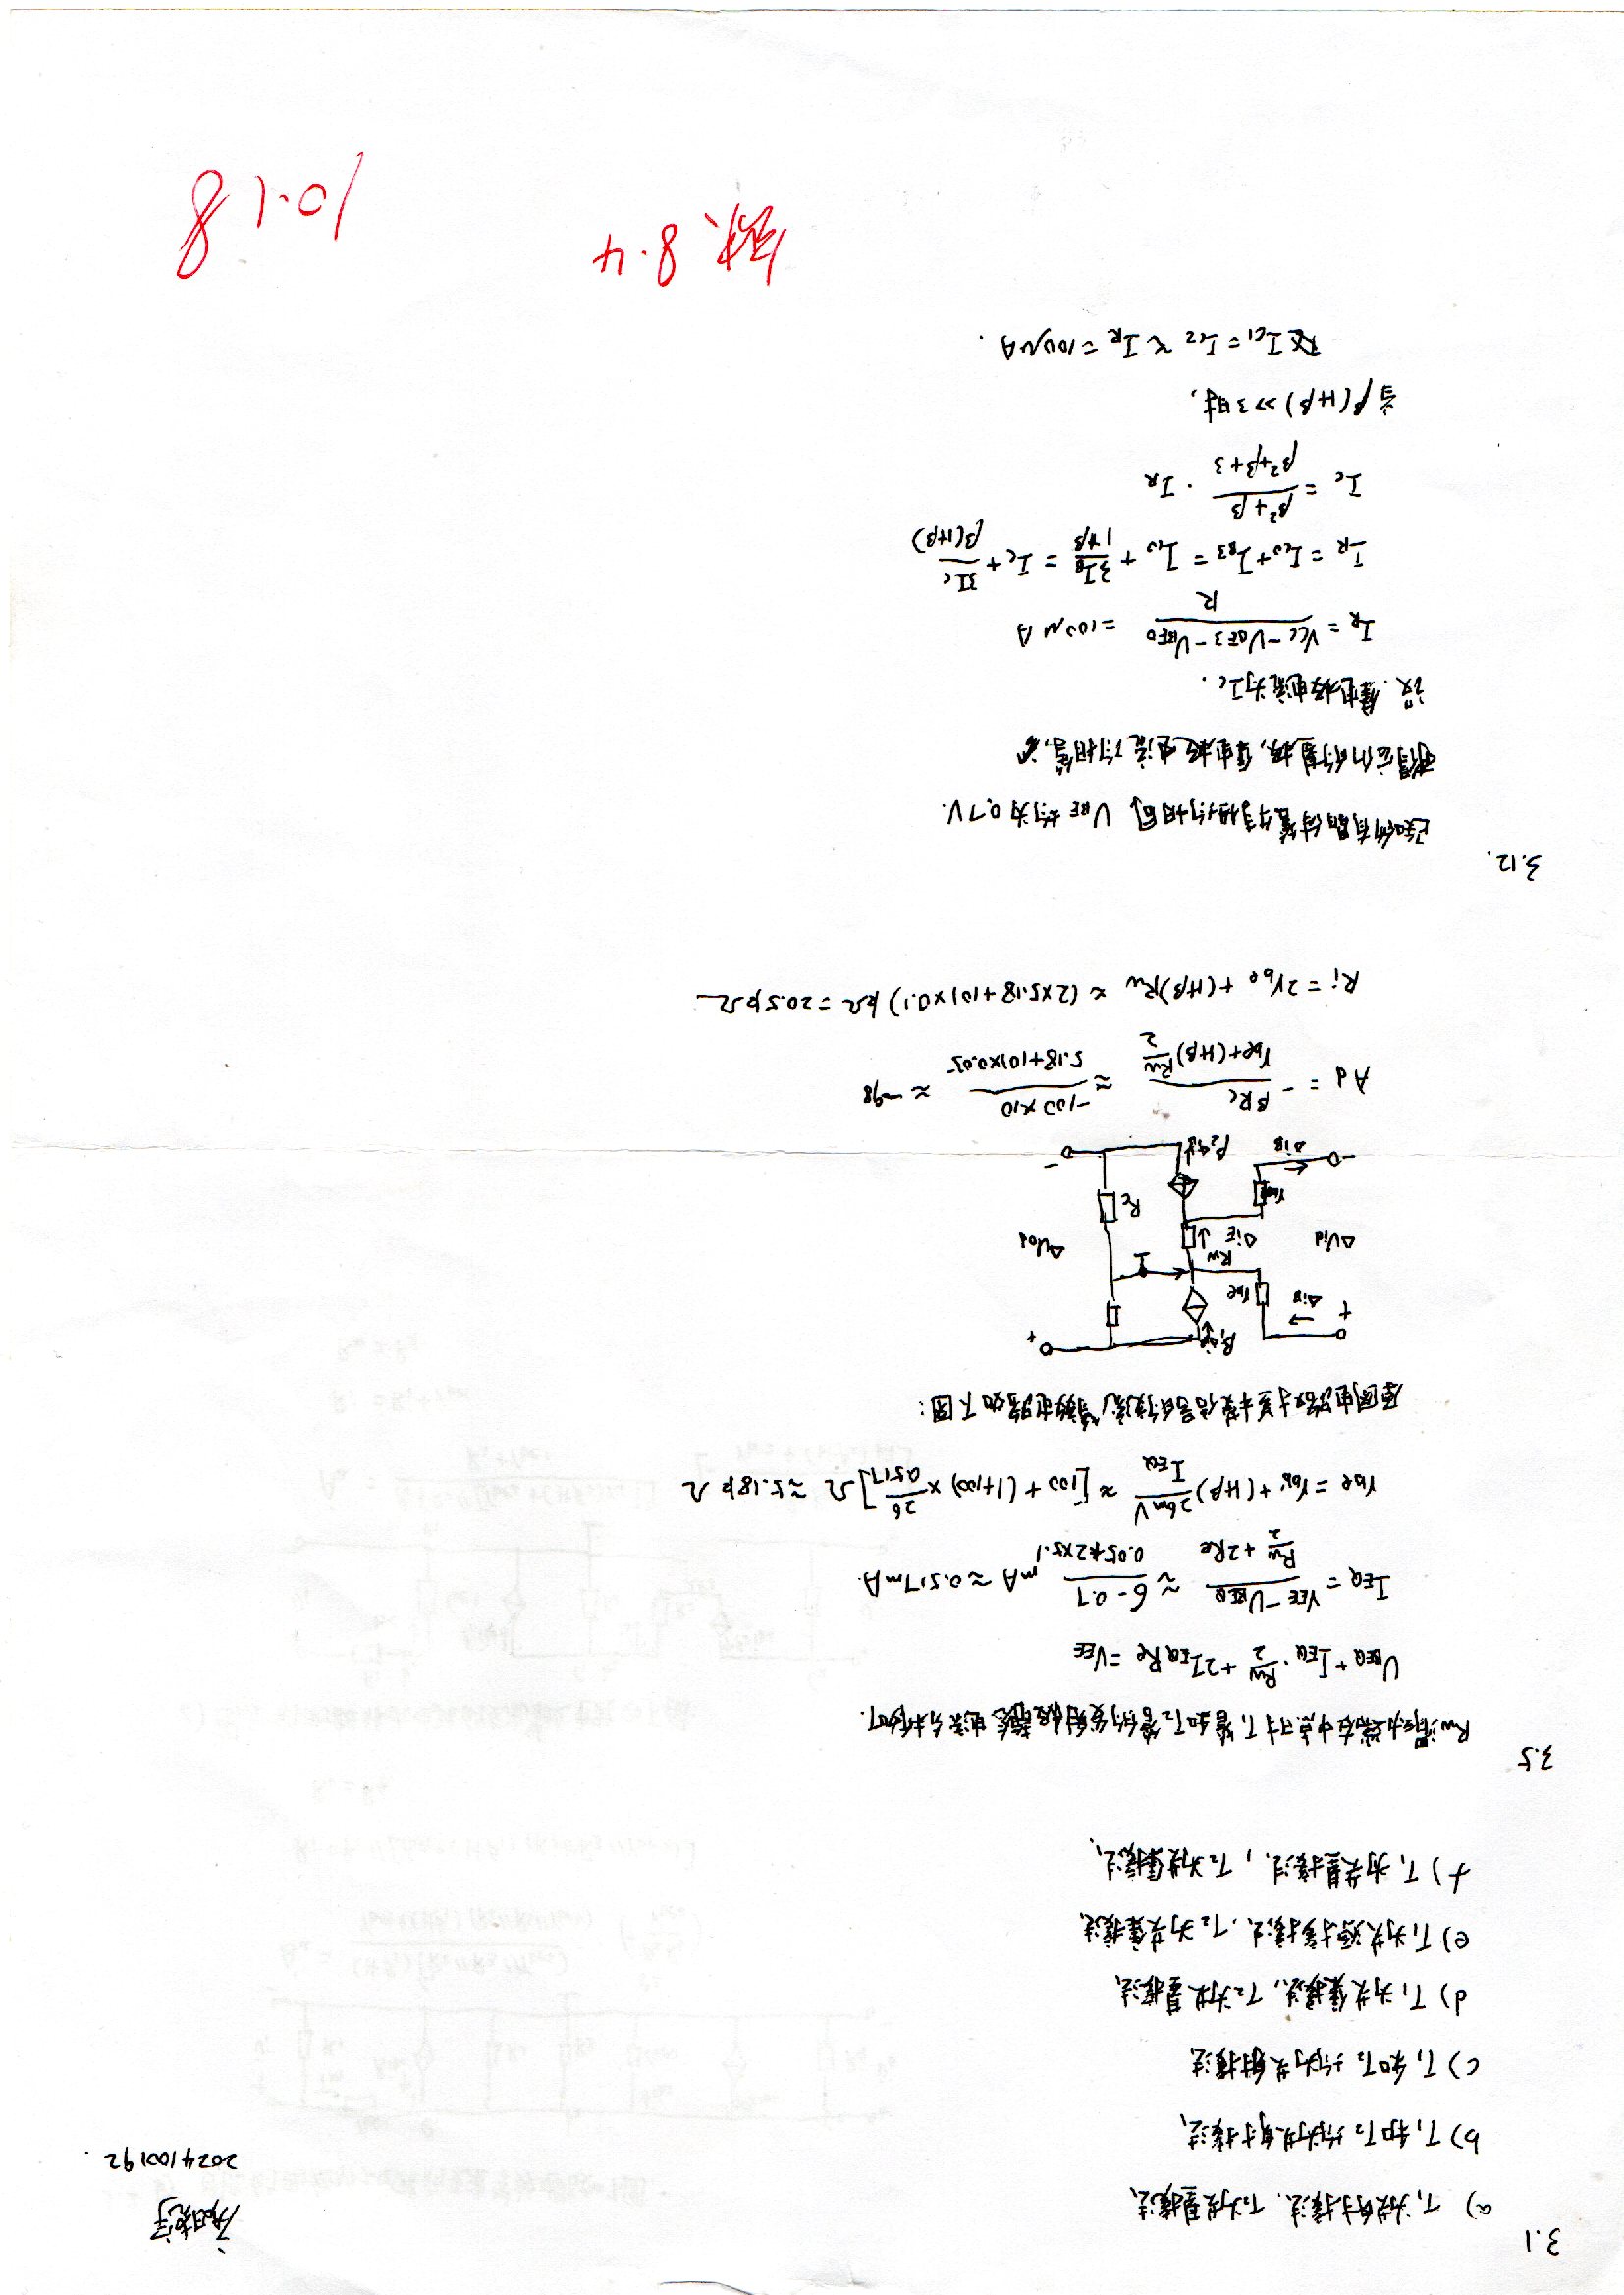 2024100192.
3.1
a) T₁为共射接法、T₂为共基接法
b) T₁和T₂均为共射接法
c) T₁和T₂均为共射接法
d) T₁为共集接法、T₂为共基接法
e) T₁为共源接法、T₂为共集接法
f) T₁为共基接法, T₂为共集接法
3.5
Rw滑动端在中点时T₁管和T₂管的发射极静态电流分析如下.
U_BEQ + I_EQ · Rw/2 + 2I_EQRe = V_EE
I_EQ = (V_EE - U_BEQ)/(Rw/2 + 2Re) ≈ (6-0.7)/(0.05+2×5.1) mA ≈ 0.517mA.
r_be = r_bb' + (1+β) 26mV/I_EQ ≈ [100 + (1+100) × 26/0.517] Ω ≈ 5.18kΩ
原图电路对差模信号的交流等效电路如下图:
+ β₁Δi_B + Δi_B r_be Rw I Δu_Id Δi_E Rc Δu_Od r_be Δi_B β₂Δi_B - -
Ad = - βRc/(r_be+(1+β)Rw/2) ≈ -100×10/(5.18+101×0.05) ≈ -98
Ri = 2r_be + (1+β)Rw ≈ (2×5.18+101×0.1) kΩ = 20.5kΩ
3.12.
已知所有晶体管特性均相同, U_BE均为0.7V.
集电极电流均相等,
设.集电极电流为Ic.
I_R = (Vcc - U_BE3 - U_BE0)/R = 100μA
I_R = I_C0 + I_B3 = I_C0 + 3I_B/(1+β) = I_C + 3I_C/(β(1+β))
I_C = (β²+β)/(β²+β+3) · I_R
当β(1+β) >> 3时,
故 I_C1 = I_C2 ≈ I_R = 100μA.
8.4
10.18